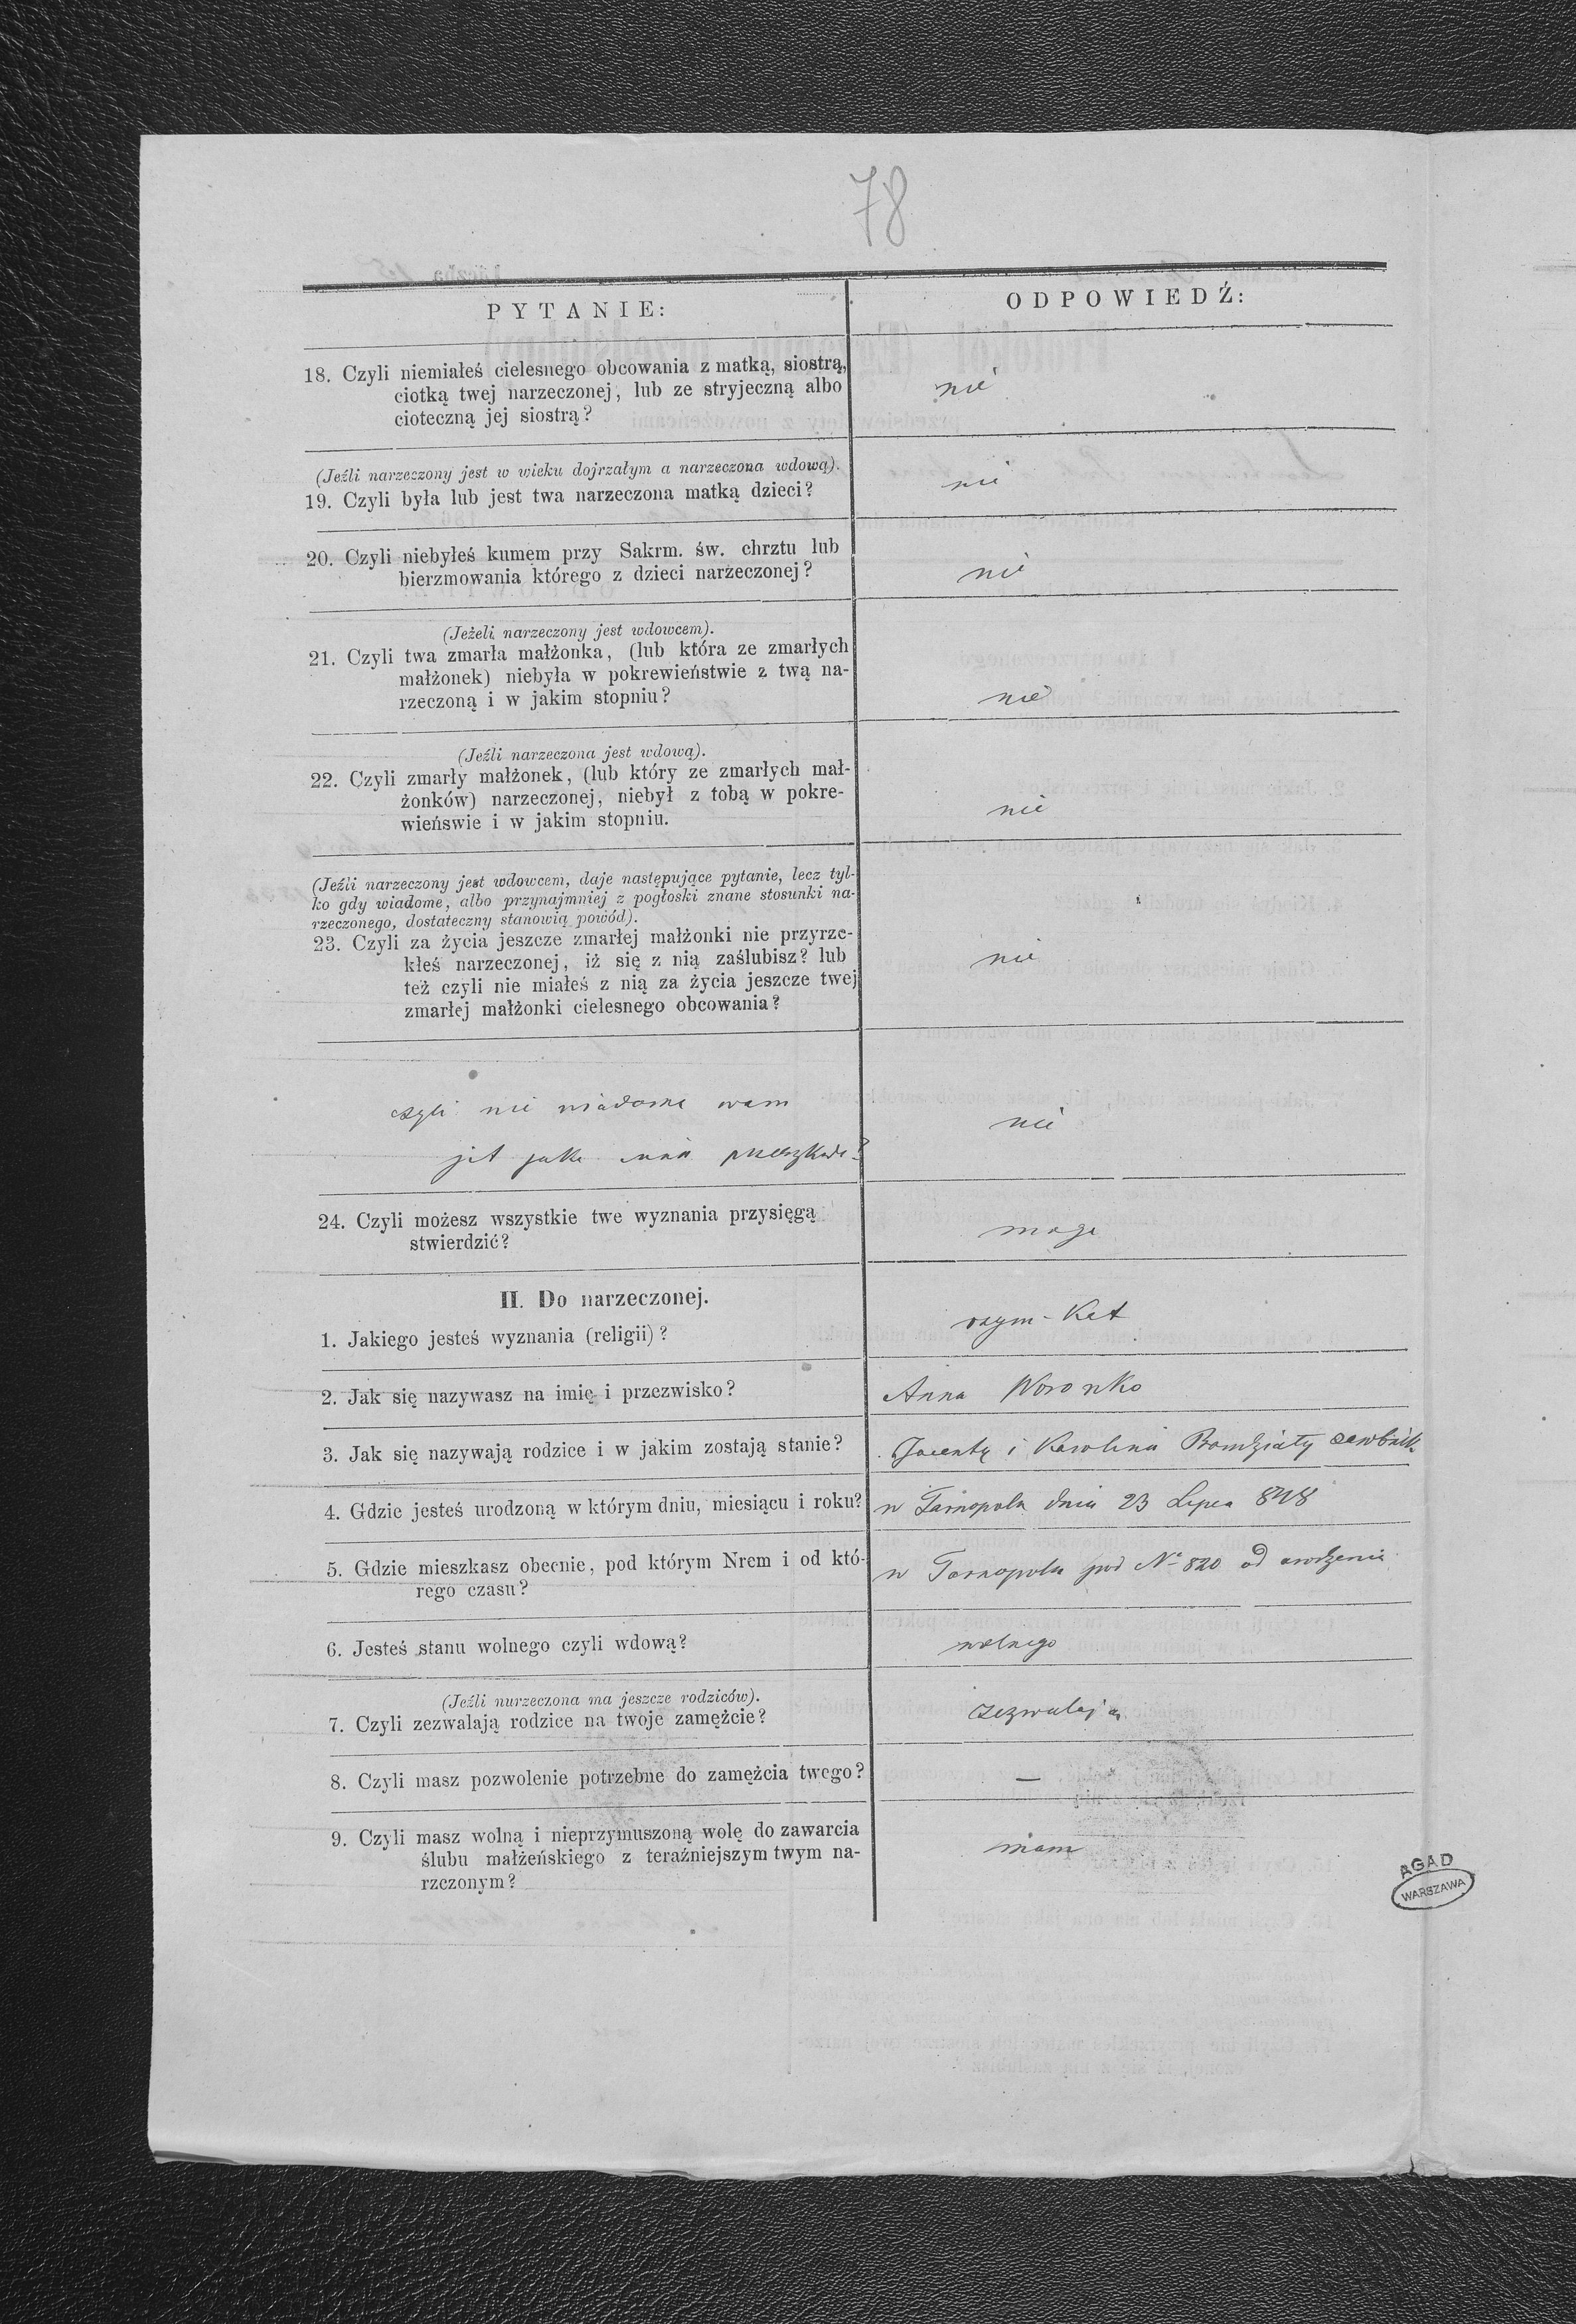 78
PYTANIE:
ODPOWIEDŹ:
18. Czyli niemiałeś cielesnego obcowania z matką, siostrą,
ciotką twej narzeczonej, lub ze stryjeczną albo
cioteczną jej siostrą?
nie
(Jeźli narzeczony jest w wieku dojrzałym a narzeczona wdową).
19. Czyli była lub jest twa narzeczona matką dzieci?
nie
20. Czyli niebyłeś kumem przy Sakrm. św. chrztu lub
bierzmowania którego z dzieci narzeczonej?
nie
(Jeżeli narzeczony jest wdowcem).
21. Czyli twa zmarła małżonka, (lub która ze zmarłych
małżonek) niebyła w pokrewieństwie z twą na-
rzeczoną i w jakim stopniu?
nie
(Jeźli narzeczona jest wdową).
22. Czyli zmarły małżonek, (lub który ze zmarłych mał-
żonków) narzeczonej, niebył z tobą w pokre-
wieńswie i w jakim stopniu.
nie
(Jeźli narzeczony jest wdowcem, daje następujące pytanie, lecz tyl-
ko gdy wiadome, albo przynajmniej z pogłoski znane stosunki na-
rzeczonego, dostateczny stanowią powód).
23. Czyli za życia jeszcze zmarłej małżonki nie przyrze-
kłeś narzeczonej, iż się z nią zaślubisz? lub
też czyli nie miałeś z nią za życia jeszcze twej
zmarłej małżonki cielesnego obcowania?
nie
czyli nie wiadoma wam
jest jaka inna przeszkoda?
nie
24. Czyli możesz wszystkie twe wyznania przysięgą
stwierdzić?
moge
II. Do narzeczonej.
1. Jakiego jesteś wyznania (religii)?
rzym-Kat
2. Jak się nazywasz na imię i przezwisko?
Anna Woronko
3. Jak się nazywają rodzice i w jakim zostają stanie?
i Karolina
4. Gdzie jesteś urodzoną w którym dniu, miesiącu i roku?
w Tarnopolu dnia 23 Lipca 848
5. Gdzie mieszkasz obecnie, pod którym Nrem i od któ-
rego czasu?
w Tarnopolu pod No 820 od urodzenia
6. Jesteś stanu wolnego czyli wdową?
wolnego
(Jeźli nurzeczona ma jeszcze rodziców).
7. Czyli zezwalają rodzice na twoje zamężcie?
zezwalają
8. Czyli masz pozwolenie potrzebne do zamężcia twego?
—
9. Czyli masz wolną i nieprzymuszoną wolę do zawarcia
ślubu małżeńskiego z teraźniejszym twym na-
rzczonym?
mam
AGAD
WARSZAWA